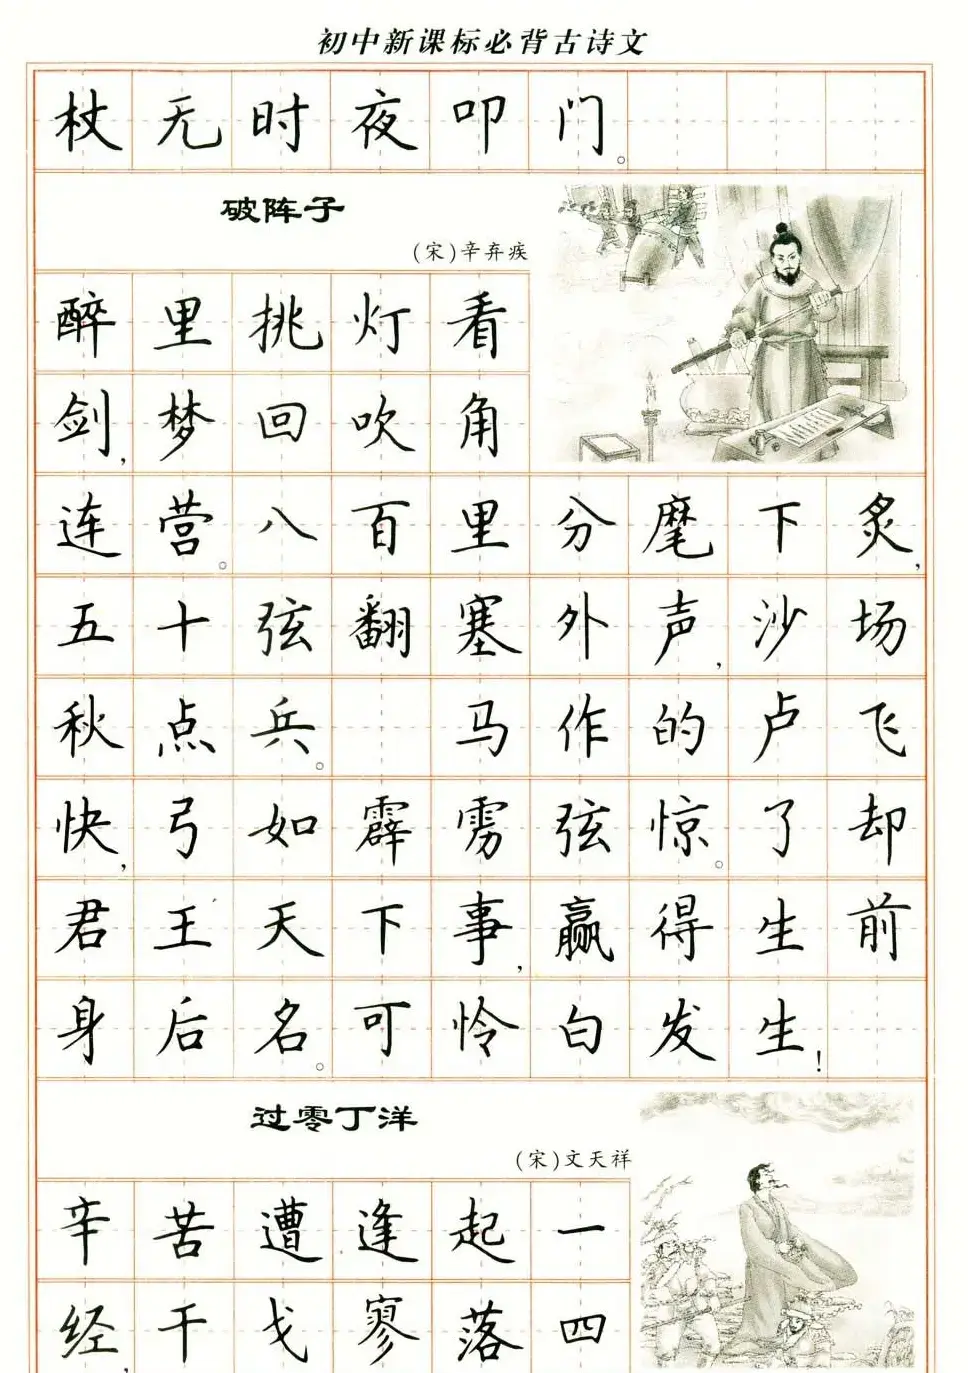 初中新课标必背古诗文
杖无时夜叩门。
破阵子
(宋)辛弃疾
醉里挑灯看
剑,梦回吹角
连营。八百里分麾下炙,
五十弦翻塞外声,沙场
秋点兵。 马作的卢飞
快,弓如霹雳弦惊。了却
君王天下事,赢得生前
身后名。可怜白发生!
过零丁洋
(宋)文天祥
辛苦遭逢起一
经,干戈寥落四